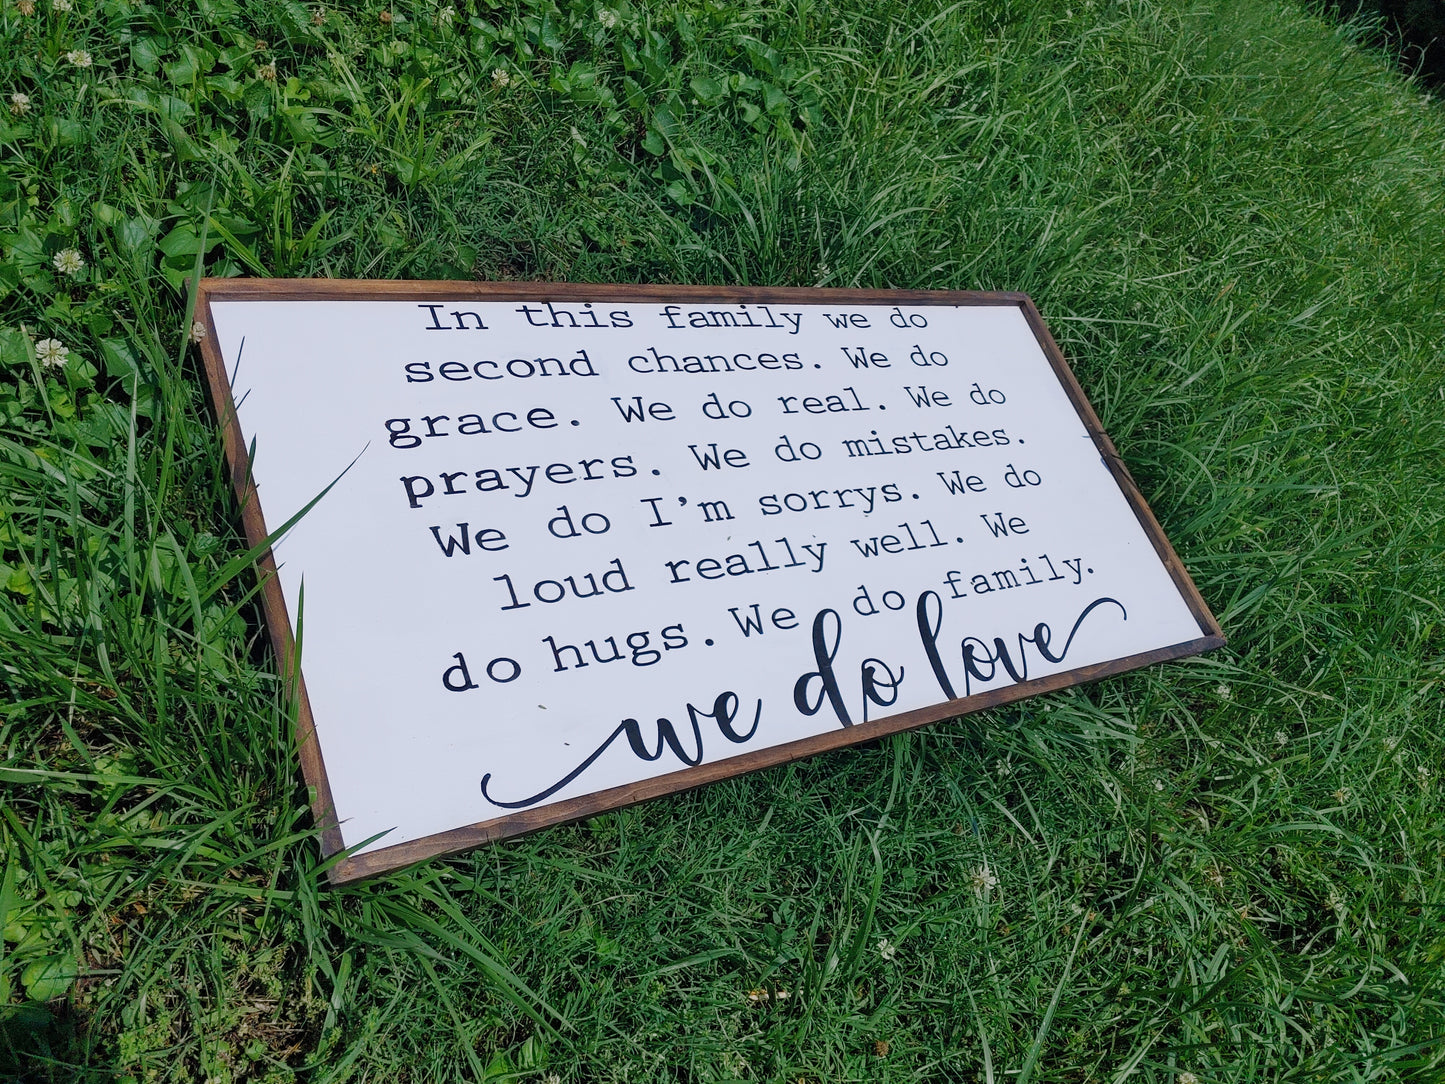 In this family we do
second chances. We do
grace. We do real. We do
prayers. We do mistakes.
We do I'm sorrys. We do
loud really well. We
do hugs. We do family.
we do love